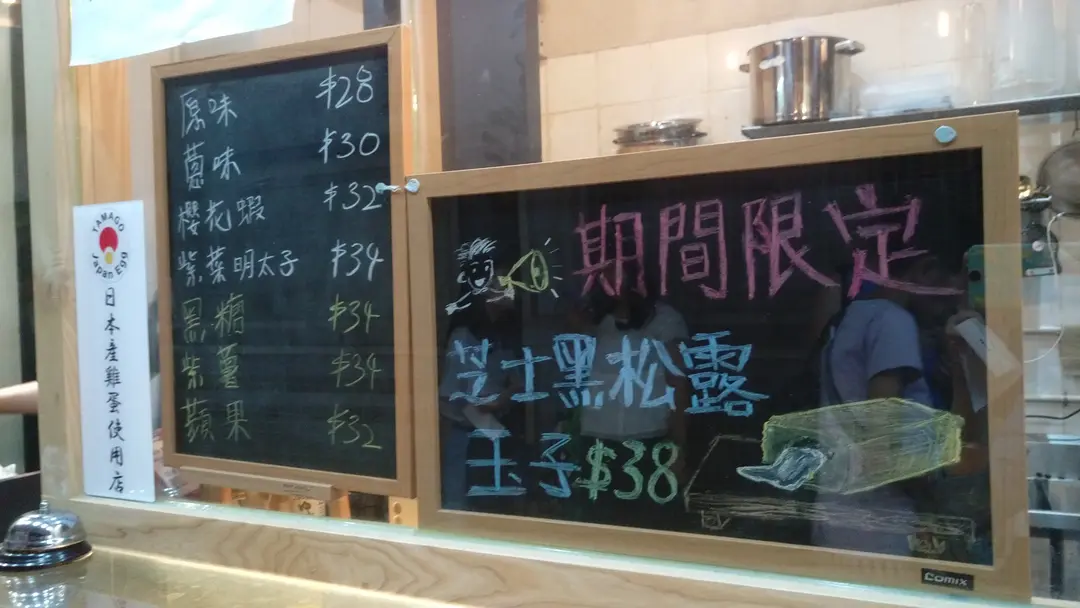 原味 $28
蔥味 $30
櫻花蝦 $32
紫菜明太子 $34
黑糖 $34
紫薯 $34
蘋果 $32
TAMAGO
Japan Egg
日本產雞蛋使用店
期間限定
芝士黑松露
玉子$38
Comix